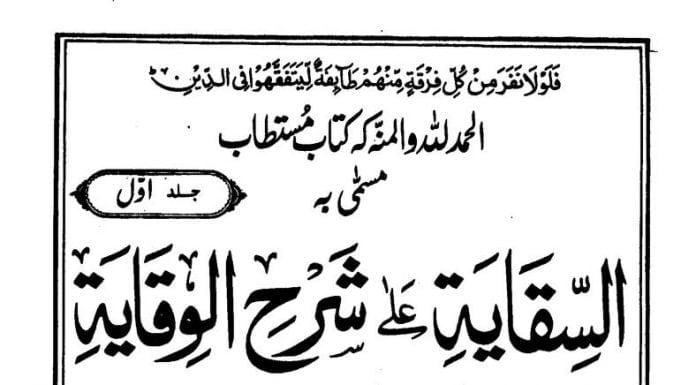 فَلَوْلَا نَفَرَ مِنْ كُلِّ فِرْقَةٍ مِّنْهُمْ طَآئِفَةٌ لِّيَتَفَقَّهُوْا فِي الدِّيْنِ ؕ
الحمد للہ والمنہ کہ کتاب مُستطاب
مسمّٰی بہ
جلد اوّل
السِّقَايَةِ عَلٰى شَرْحِ الْوِقَايَةِ